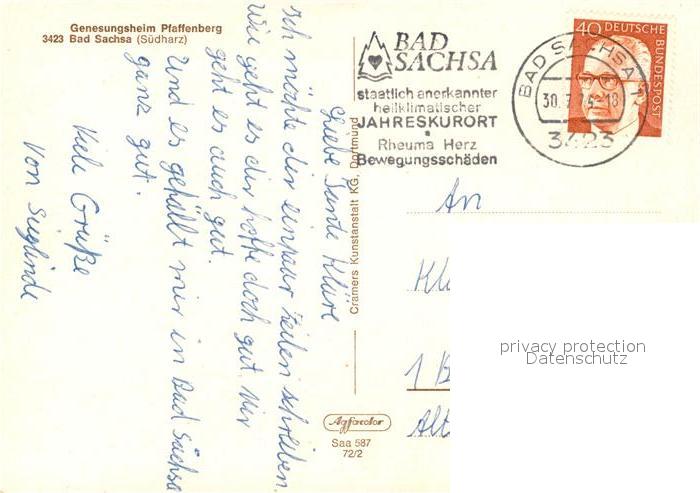 Genesungsheim Pfaffenberg
3423 Bad Sachsa (Südharz)
BAD
SACHSA
staatlich anerkannter
heilklimatischer
JAHRESKURORT
Rheuma Herz
Bewegungsschäden
BAD SACHSA
30.7.
-18
3423
40 DEUTSCHE
BUNDESPOST
Liebe Tante Kläre
ich möchte dir einpaar Zeilen schreiben.
Wie geht es dir hoffe doch gut. Mir
geht es auch gut.
Und es gefällt mir in Bad Sachsa
ganz gut.
Viele Grüße
von Sieglinde
Cramers Kunstanstalt KG, Dortmund
An
1 B
Alt
Agfacolor
Saa 587
72/2
privacy protection
Datenschutz